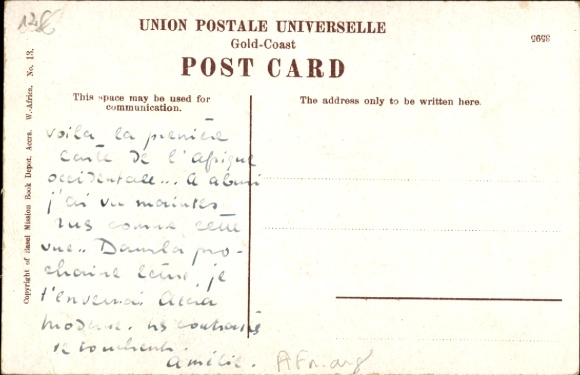 UNION POSTALE UNIVERSELLE
Gold-Coast
POST CARD
3595
This space may be used for
communication.
The address only to be written here.
Copyright of Basel Mission Book Depot, Accra. W.-Africa. No. 13.
voilà la première
carte de l'Afrique
occidentale... A aburi
j'ai vu maintes
rues comme cette
vue.. Dans la pro-
chaine lettre, je
t'enverrai Accra
moderne. les contrastes
se touchent.
Amélie.